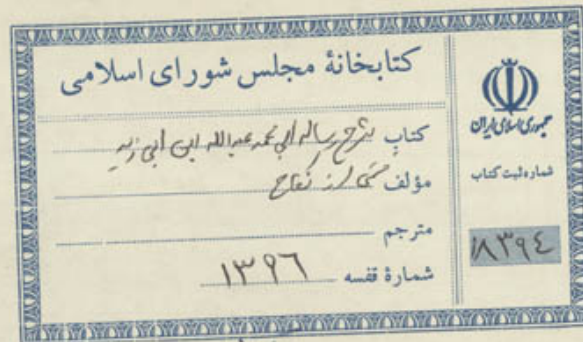 کتابخانهٔ مجلس شورای اسلامی
کتاب شرح رساله ابی محمد عبدالله ابن ابی زید
مؤلف
مترجم
شمارهٔ قفسه ۱۳۹۶
جمهوری اسلامی ایران
شماره ثبت کتاب
۱۸۳۹٤